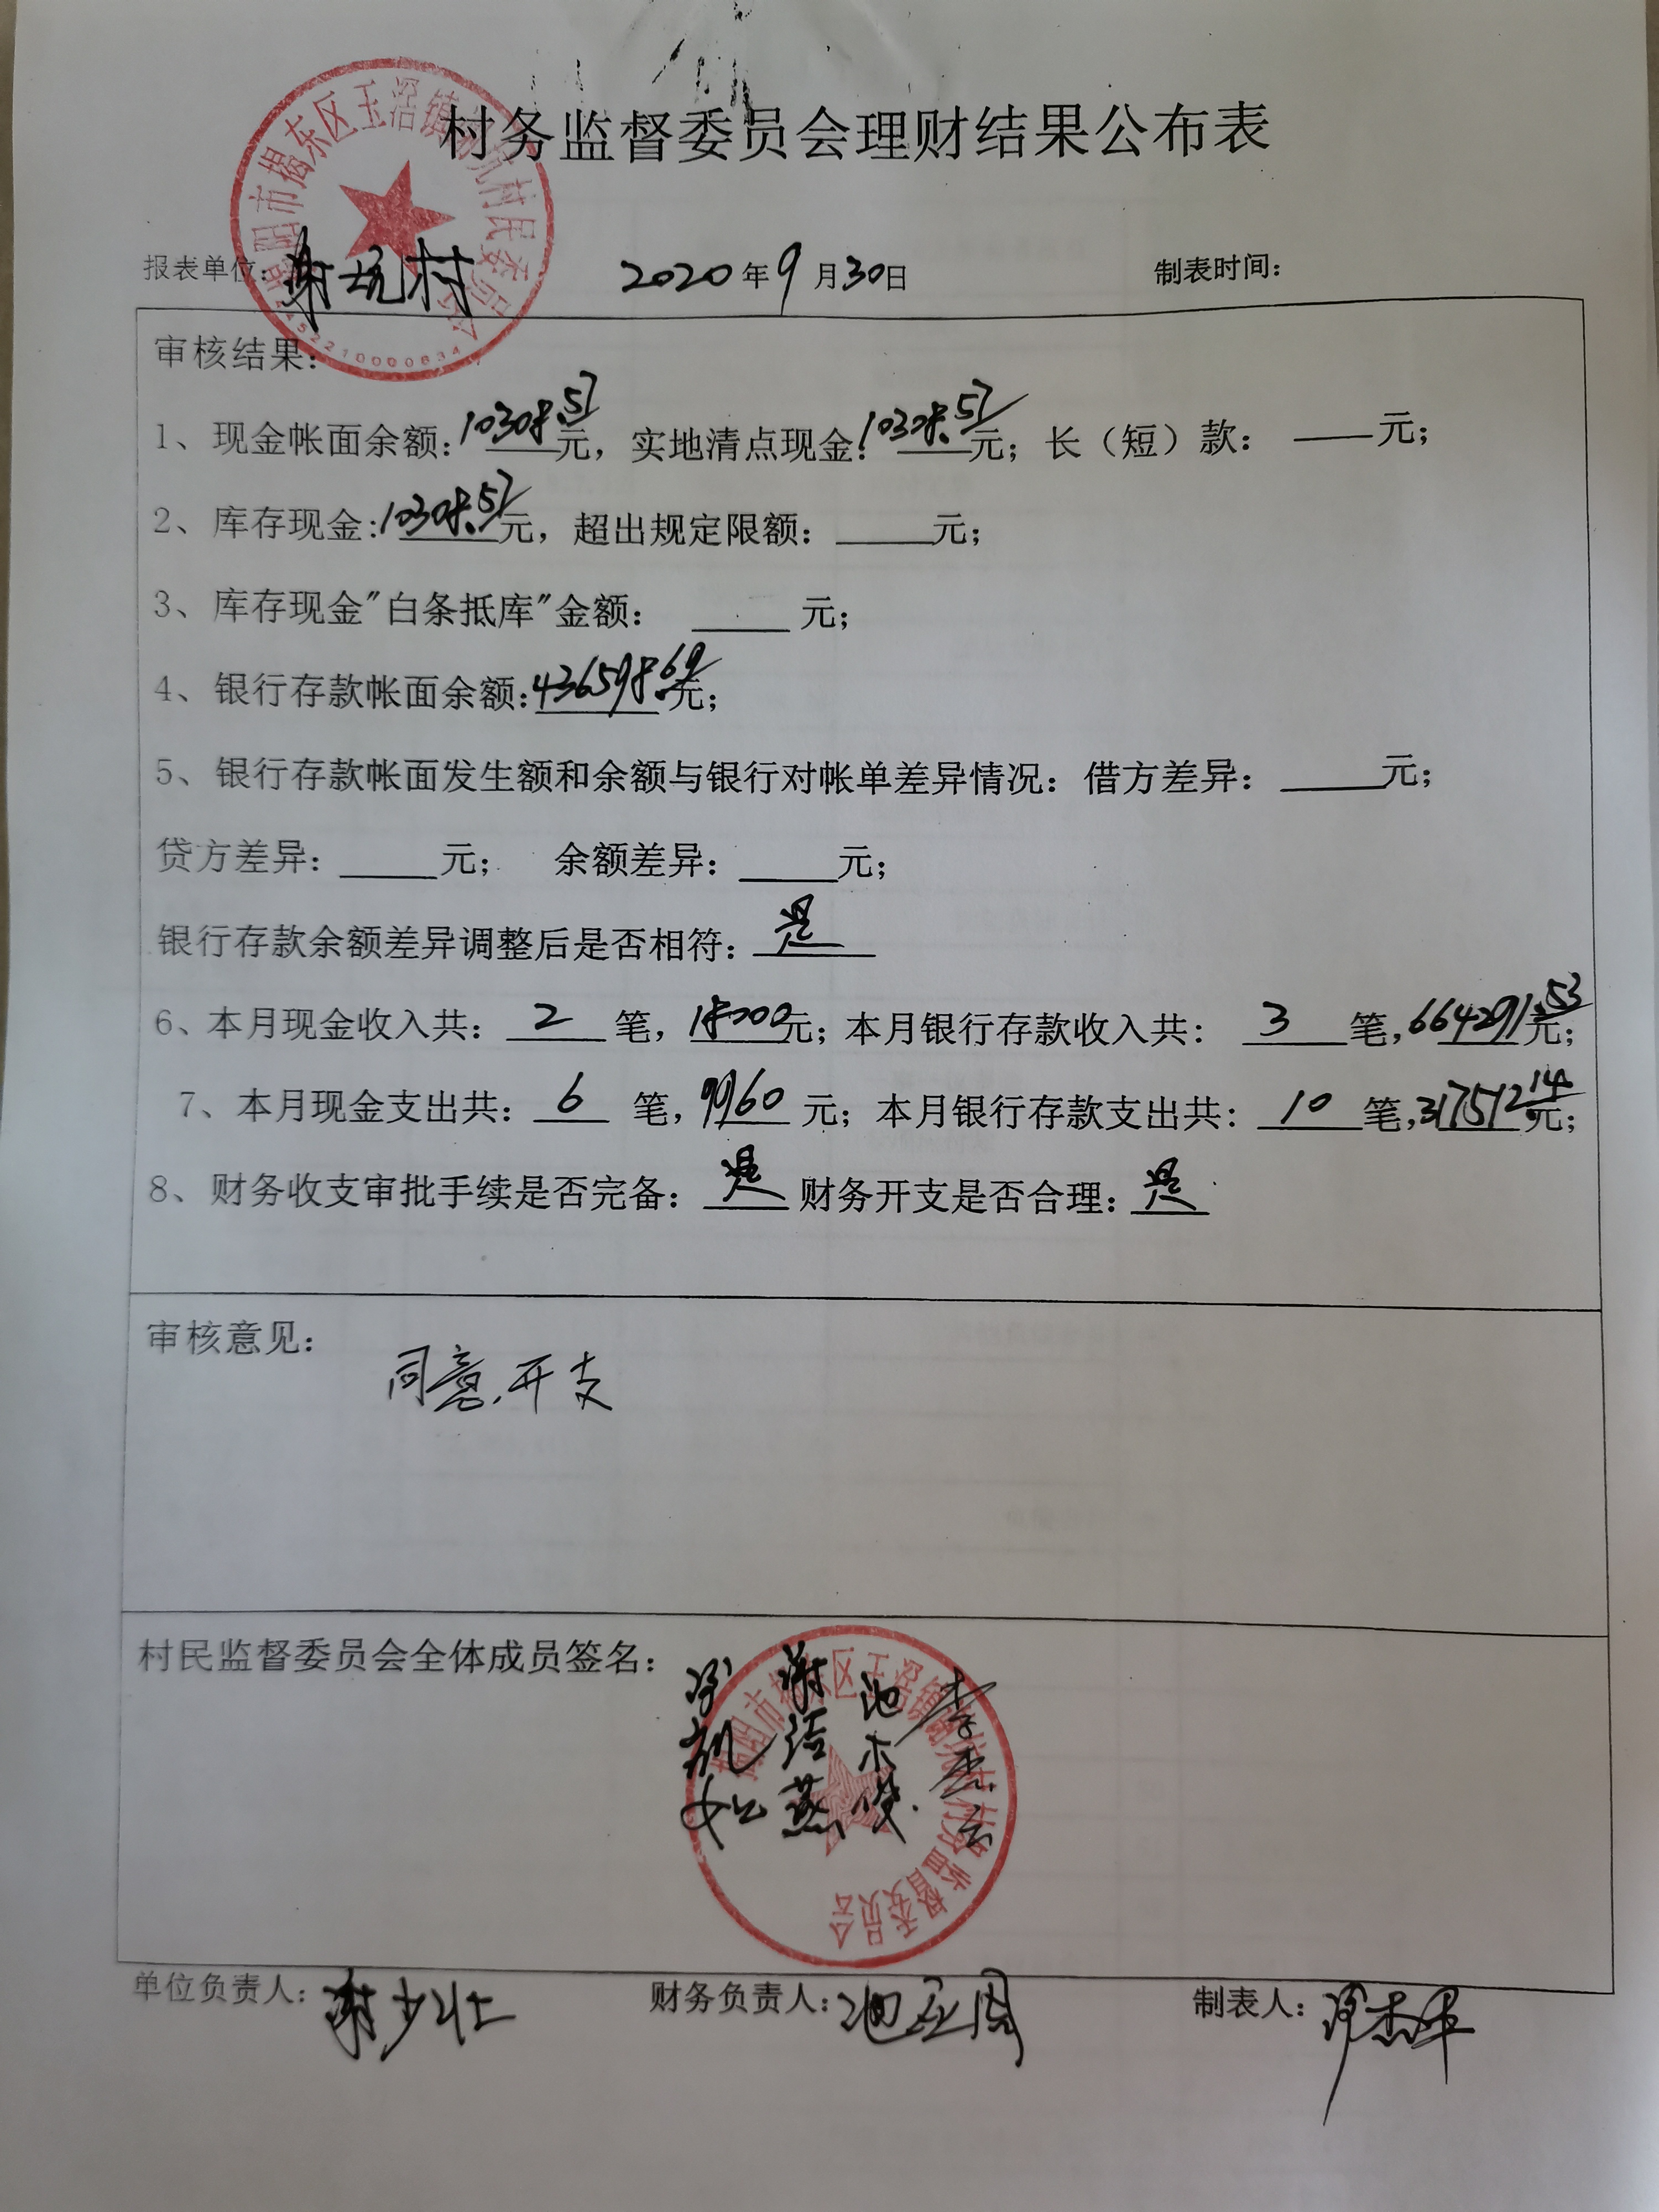 村务监督委员会理财结果公布表
报表单位：谢坑村 2020年9月30日 制表时间：
审核结果：
1、现金帐面余额：10308.57元，实地清点现金：10308.57元；长（短）款：——元；
2、库存现金：10308.57元，超出规定限额：_____元；
3、库存现金"白条抵库"金额：_____元；
4、银行存款帐面余额：436598.69元；
5、银行存款帐面发生额和余额与银行对帐单差异情况：借方差异：_____元；
贷方差异：_____元； 余额差异：_____元；
银行存款余额差异调整后是否相符：是
6、本月现金收入共：2笔，18200元；本月银行存款收入共：3笔，664291.53元；
7、本月现金支出共：6笔，9960元；本月银行存款支出共：10笔，317512.14元；
8、财务收支审批手续是否完备：是 财务开支是否合理：是
审核意见：
同意.开支
村民监督委员会全体成员签名：
揭阳市揭东区玉滘镇谢坑村务监督委员会
单位负责人：谢少壮 财务负责人：池 制表人：
揭阳市揭东区玉滘镇谢坑村民委员会